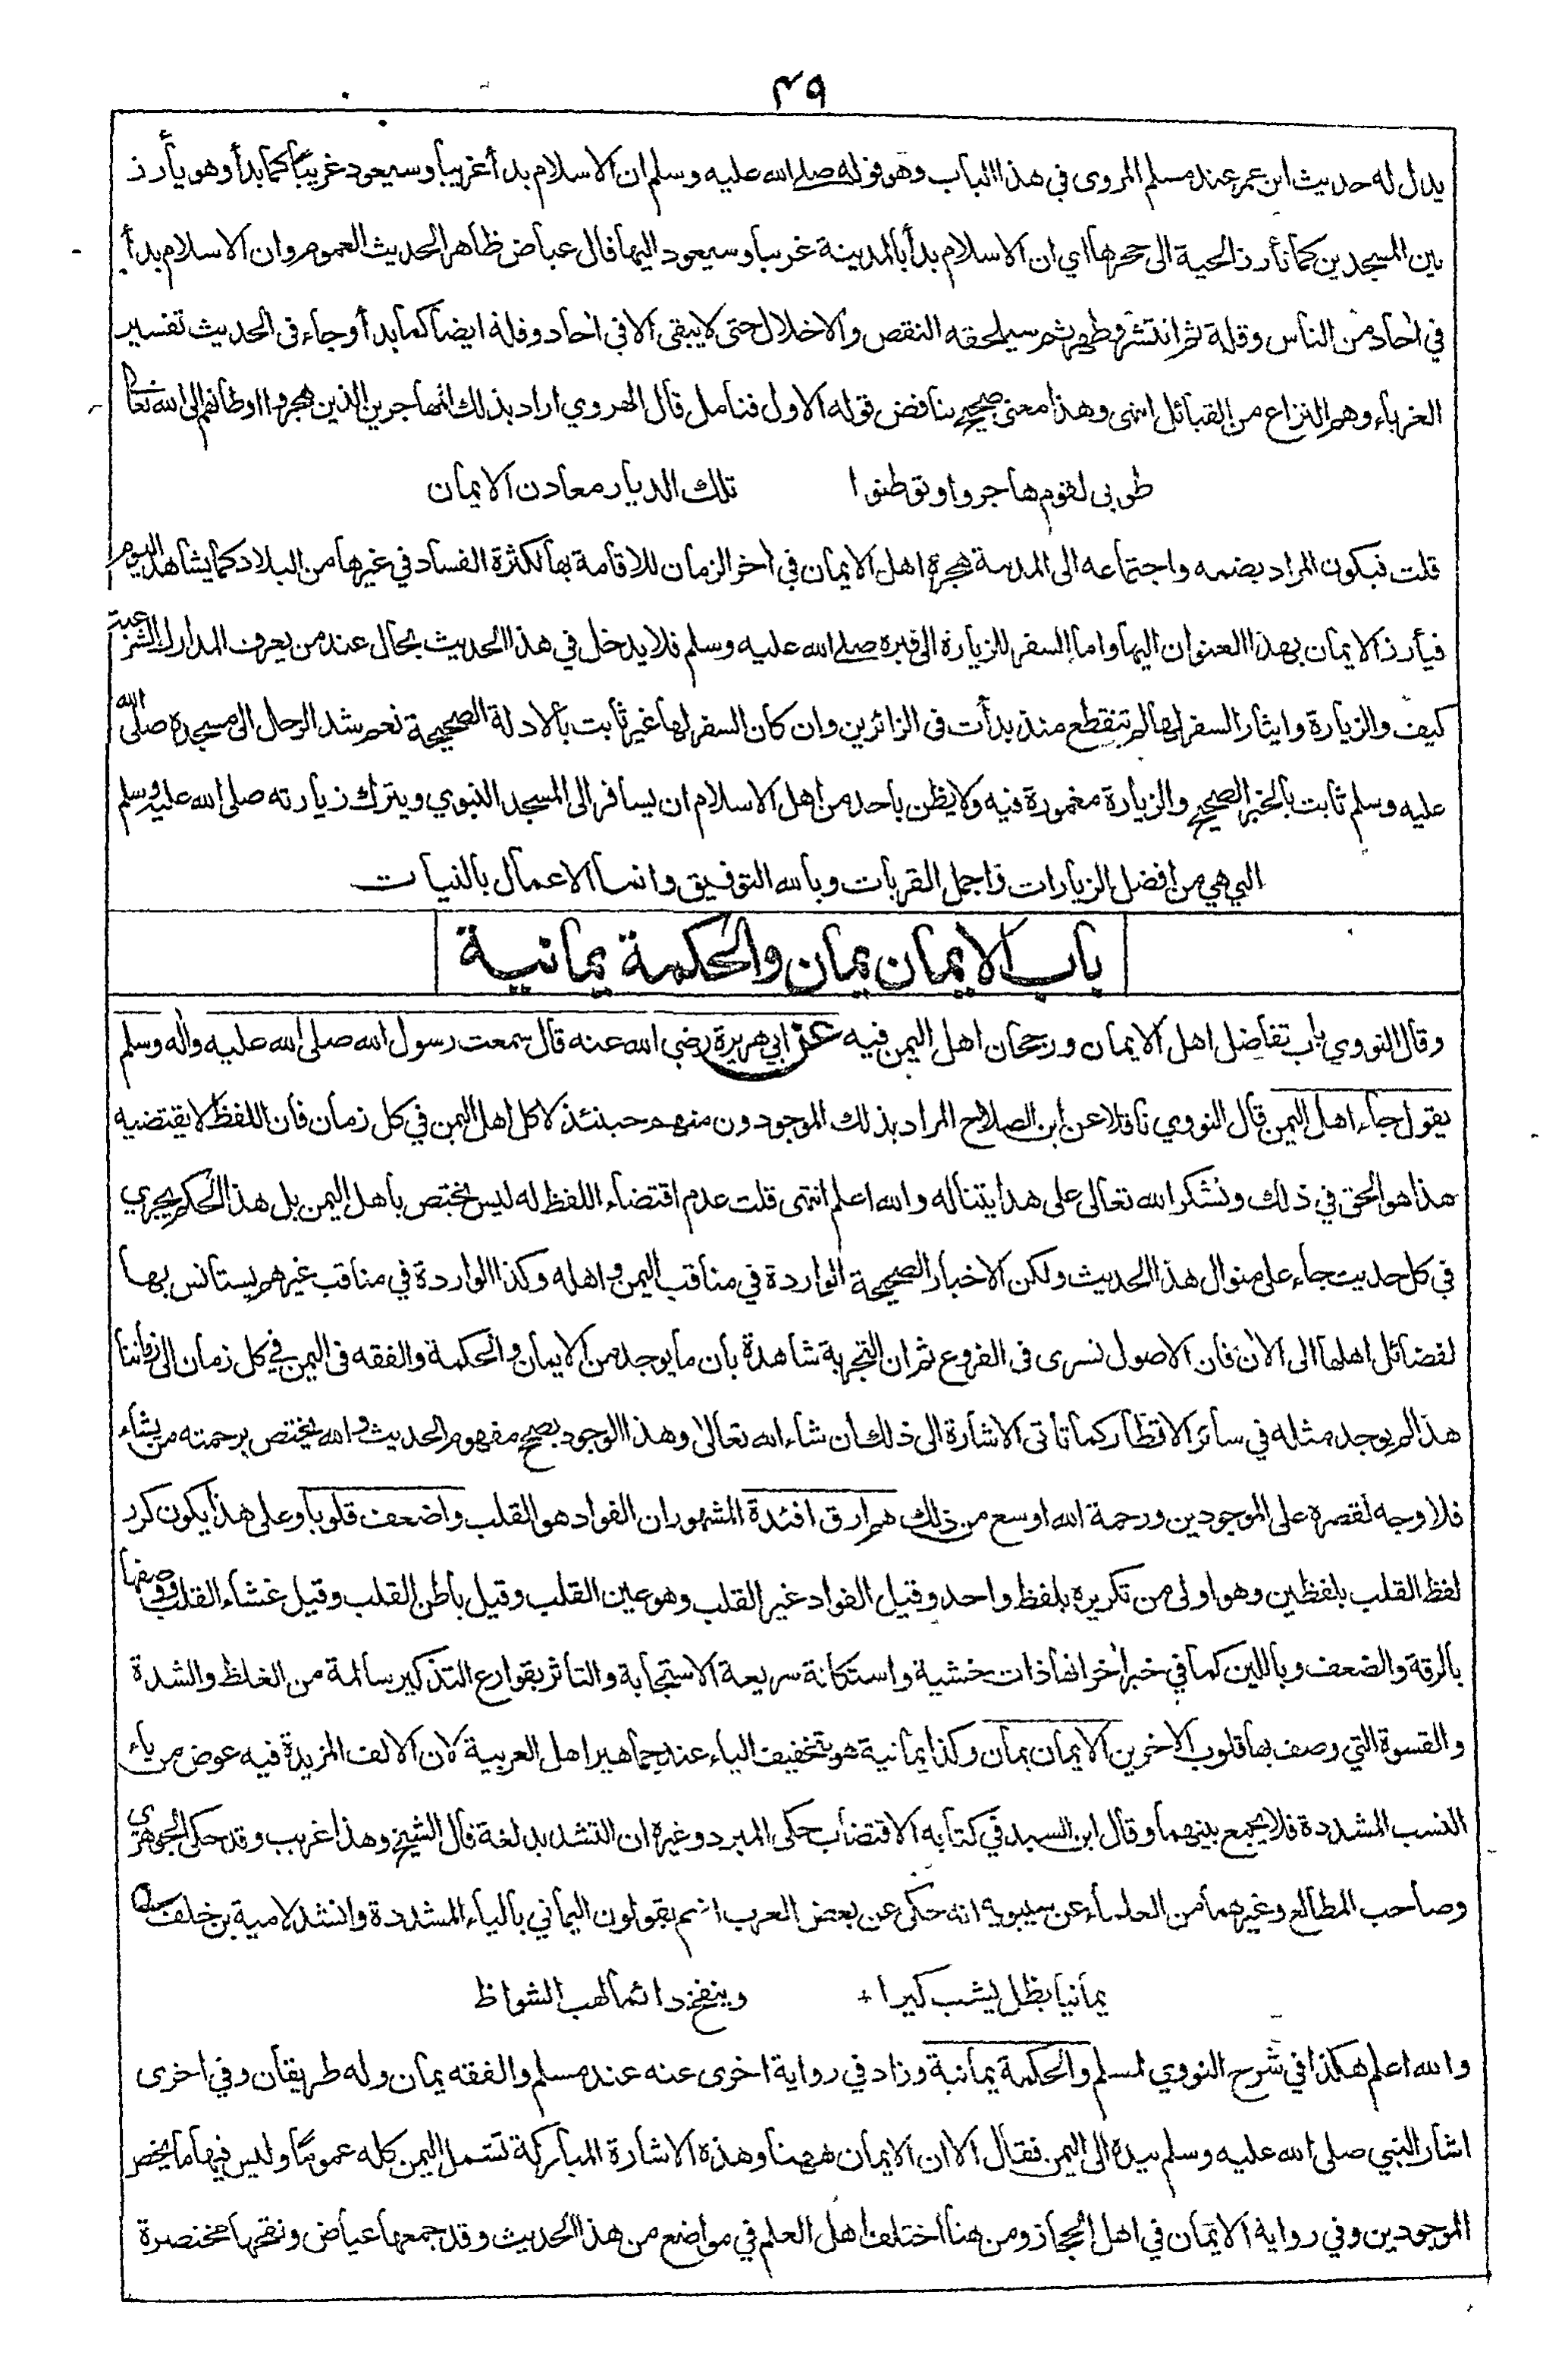 ٤٩
يدل له حديث ابن عمر عند مسلم المروى فى هذا الباب وهو قوله صلى الله عليه وسلم ان الاسلام بدأ غريبا وسيعود غريبًا كما بدأ وهو يأرز
بين المسجدين كما تأرز الحية الى جحرها اي ان الاسلام بدأ بالمدينة غريبا وسيعود اليها قال عياض ظاهر الحديث العموم وان الاسلام بدأ
في أحاد من الناس وقلة ثم انتشر وظهر ثم سيلحقه النقص والاخلال حتى لا يبقى الا في أحاد وقلة ايضا كما بدأ وجاء فى الحديث تفسير
الغرباء وهم النزاع من القبائل انتهى وهذا معنى صحيح يناقض قوله الاول فتأمل قال الهروي اراد بذلك المهاجرين الذين هجروا اوطانهم الى الله تعالى
طوبى لقوم هاجروا وتوطنوا تلك الديار معادن الايمان
قلت فيكون المراد بضمه واجتماعه الى المدينة هجرة اهل الايمان في أخر الزمان للاقامة بها لكثرة الفساد في غيرها من البلاد كما يشاهد اليوم
فيأرز الايمان بهذا العنوان اليها واما السفر للزيارة الى قبره صلى الله عليه وسلم فلا يدخل في هذا الحديث بحال عند من يعرف المدارك الشرعية
كيف والزيارة وايثار السفر لها لم تنقطع منذ بدأت فى الزائرين وان كان السفر لها غير ثابت بالادلة الصحيحة نعم شد الرحال الى مسجده صلى الله
عليه وسلم ثابت بالخبر الصحيح والزيارة مغمورة فيه ولا يظن باحد من اهل الاسلام ان يسافر الى المسجد النبوي ويترك زيارته صلى الله عليه وسلم
التي هي من افضل الزيارات واجمل القربات وبالله التوفيق وانما الاعمال بالنيات
باب الايمان يمان والحكمة يمانية
وقال النووي باب تفاضل اهل الايمان ورجحان اهل اليمن فيه عن ابي هريرة رضي الله عنه قال سمعت رسول الله صلى الله عليه وأله وسلم
يقول جاء اهل اليمن قال النووي ناقلا عن ابن الصلاح المراد بذلك الموجودون منهم حينئذ لا كل اهل اليمن في كل زمان فان اللفظ لا يقتضيه
هذا هو الحق في ذلك ونشكر الله تعالى على هدايتنا له والله اعلم انتهى قلت عدم اقتضاء اللفظ له ليس يختص باهل اليمن بل هذا الحكم يجري
في كل حديث جاء على منوال هذا الحديث ولكن الاخبار الصحيحة الواردة في مناقب اليمن واهله وكذا الواردة في مناقب غيرهم يستانس بها
لفضائل اهلها الى الأن فان الاصول تسرى فى الفروع ثم ان التجربة شاهدة بان ما يوجد من الايمان والحكمة والفقه فى اليمن في كل زمان الى زماننا
هذا لم يوجد مثله في سائر الاقطار كما تأتى الاشارة الى ذلك ان شاء الله تعالى وهذا الوجود يصحح مفهوم الحديث والله يختص برحمته من يشاء
فلا وجه لقصره على الموجودين ورحمة الله اوسع من ذلك هم ارق افئدة المشهور ان الفواد هو القلب واضعف قلوبا وعلى هذا يكون كرر
لفظ القلب بلفظين وهو اولى من تكريره بلفظ واحد وقيل الفواد غير القلب وهو عين القلب وقيل باطن القلب وقيل غشاء القلب ووصفها
بالرقة والضعف وباللين كما في خبر أخر انها ذات خشية واستكانة سريعة الاستجابة والتاثر بقوارع التذكير سالمة من الغلظ والشدة
والقسوة التي وصف بها قلوب الأخرين الايمان يمان وكذا يمانية هو بتخفيف الياء عند جماهير اهل العربية لان الالف المزيدة فيه عوض من ياء
النسب المشددة فلا يجمع بينهما وقال ابن السيد في كتابه الاقتضاب حكى المبرد وغيره ان التشديد لغة قال الشيخ وهذا غريب وقد حكى الجوهرى
وصاحب المطالع وغيرهما من العلماء عن سيبويه انه حكى عن بعض العرب انهم يقولون اليماني بالياء المشددة وانشد لامية بن خلف
يمانيا يظل يشب كيرا + وينفخ دائما لهب الشواظ
والله اعلم هكذا في شرح النووي لمسلم والحكمة يمانية وزاد في رواية اخرى عنه عند مسلم والفقه يمان وله طريقان وفي اخرى
اشار النبي صلى الله عليه وسلم بيده الى اليمن فقال الا ان الايمان ههنا وهذه الاشارة المباركة تشمل اليمن كله عمومًا وليس فيها ما يخص
الموجودين وفي رواية الايمان في اهل الحجاز ومن هنا اختلف اهل العلم في مواضع من هذا الحديث وقد جمعها عياض ونقحها مختصرة